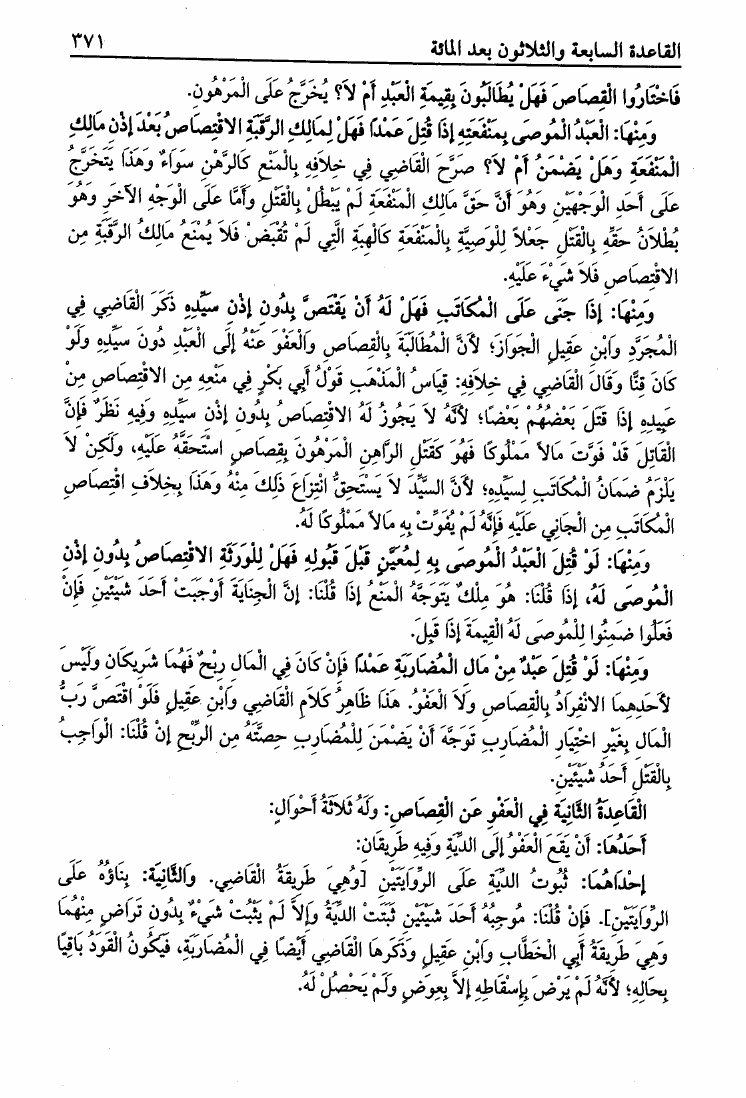 القاعدة السابعة والثلاثون بعد المائة ٣٧١
فَاخْتَارُوا الْقِصَاصَ فَهَلْ يُطَالَبُونَ بِقِيمَةِ الْعَبْدِ أَمْ لاَ؟ يُخَرَّجُ عَلَى الْمَرْهُونِ.
وَمِنْهَا: الْعَبْدُ الْمُوصَى بِمَنْفَعَتِهِ إذَا قُتِلَ عَمْدًا فَهَلْ لِمَالِكِ الرَّقَبَةِ الاقْتِصَاصُ بَعْدَ إذْنِ مَالِكِ
الْمَنْفَعَةِ وَهَلْ يَضْمَنُ أَمْ لاَ؟ صَرَّحَ الْقَاضِي فِي خِلاَفِهِ بِالْمَنْعِ كَالرَّهْنِ سَوَاءٌ وَهَذَا يَتَخَرَّجُ
عَلَى أَحَدِ الْوَجْهَيْنِ وَهُوَ أَنَّ حَقَّ مَالِكِ الْمَنْفَعَةِ لَمْ يَبْطُلْ بِالْقَتْلِ وَأَمَّا عَلَى الْوَجْهِ الآخَرِ وَهُوَ
بُطْلاَنُ حَقِّهِ بِالْقَتْلِ جَعْلاً لِلْوَصِيَّةِ بِالْمَنْفَعَةِ كَالْهِبَةِ الَّتِي لَمْ تُقْبَضْ فَلاَ يُمْنَعُ مَالِكُ الرَّقَبَةِ مِن
الاقْتِصَاصِ فَلاَ شَيْءَ عَلَيْهِ.
وَمِنْهَا: إذَا جَنَى عَلَى الْمُكَاتَبِ فَهَلْ لَهُ أَنْ يَقْتَصَّ بِدُونِ إذْنِ سَيِّدِهِ ذَكَرَ الْقَاضِي فِي
الْمُجَرَّدِ وَابْنِ عَقِيلٍ الْجَوَازَ؛ لأَنَّ الْمُطَالَبَةَ بِالْقِصَاصِ وَالْعَفْوَ عَنْهُ إلَى الْعَبْدِ دُونَ سَيِّدِهِ وَلَوْ
كَانَ قِنًّا وَقَالَ الْقَاضِي فِي خِلاَفِهِ: قِيَاسُ الْمَذْهَبِ قَوْلُ أَبِي بَكْرٍ فِي مَنْعِهِ مِن الاقْتِصَاصِ مِنْ
عَبِيدِهِ إذَا قَتَلَ بَعْضُهُمْ بَعْضًا؛ لأَنَّهُ لاَ يَجُوزُ لَهُ الاقْتِصَاصُ بِدُونِ إذْنِ سَيِّدِهِ وَفِيهِ نَظَرٌ فَإِنَّ
الْقَاتِلَ قَدْ فَوَّتَ مَالاً مَمْلُوكًا فَهُوَ كَقَتْلِ الرَّاهِنِ الْمَرْهُونَ بِقِصَاصٍ اسْتَحَقَّهُ عَلَيْهِ، وَلَكِنْ لاَ
يَلْزَمُ ضَمَانُ الْمُكَاتَبِ لِسَيِّدِهِ؛ لأَنَّ السَّيِّدَ لاَ يَسْتَحِقُّ انْتِزَاعَ ذَلِكَ مِنْهُ وَهَذَا بِخِلاَفِ اقْتِصَاصِ
الْمُكَاتَبِ مِن الْجَانِي عَلَيْهِ فَإِنَّهُ لَمْ يُفَوِّتْ بِهِ مَالاً مَمْلُوكًا لَهُ.
وَمِنْهَا: لَوْ قُتِلَ الْعَبْدُ الْمُوصَى بِهِ لِمُعَيَّنٍ قَبْلَ قَبُولِهِ فَهَلْ لِلْوَرَثَةِ الاقْتِصَاصُ بِدُونِ إذْنِ
الْمُوصَى لَهُ، إذَا قُلْنَا: هُوَ مِلْكٌ يَتَوَجَّهُ الْمَنْعُ إذَا قُلْنَا: إنَّ الْجِنَايَةَ أَوْجَبَتْ أَحَدَ شَيْئَيْنِ فَإِنْ
فَعَلُوا ضَمِنُوا لِلْمُوصَى لَهُ الْقِيمَةَ إذَا قَبِلَ.
وَمِنْهَا: لَوْ قُتِلَ عَبْدٌ مِنْ مَالِ الْمُضَارَبَةِ عَمْدًا فَإِنْ كَانَ فِي الْمَالِ رِبْحٌ فَهُمَا شَرِيكَانِ وَلَيْسَ
لأَحَدِهِمَا الانْفِرَادُ بِالْقِصَاصِ وَلاَ الْعَفْوُ. هَذَا ظَاهِرُ كَلاَمِ الْقَاضِي وَابْنِ عَقِيلٍ فَلَوْ اقْتَصَّ رَبُّ
الْمَالِ بِغَيْرِ اخْتِيَارِ الْمُضَارِبِ تَوَجَّهَ أَنْ يَضْمَنَ لِلْمُضَارِبِ حِصَّتَهُ مِن الرِّبْحِ إنْ قُلْنَا: الْوَاجِبُ
بِالْقَتْلِ أَحَدُ شَيْئَيْنِ.
الْقَاعِدَةُ الثَّانِيَةُ فِي الْعَفْوِ عَنِ الْقِصَاصِ: وَلَهُ ثَلاَثَةُ أَحْوَالٍ:
أَحَدُهَا: أَنْ يَقَعَ الْعَفْوُ إلَى الدِّيَةِ وَفِيهِ طَرِيقَانِ:
إحْدَاهُمَا: ثُبُوتُ الدِّيَةِ عَلَى الرِّوَايَتَيْنِ [وَهِيَ طَرِيقَةُ الْقَاضِي. وَالثَّانِيَةُ: بِنَاؤُهُ عَلَى
الرِّوَايَتَيْنِ]. فَإِنْ قُلْنَا: مُوجِبُهُ أَحَدَ شَيْئَيْنِ ثَبَتَتْ الدِّيَةُ وَإِلاَّ لَمْ يَثْبُتْ شَيْءٌ بِدُونِ تَرَاضٍ مِنْهُمَا
وَهِيَ طَرِيقَةُ أَبِي الْخَطَّابِ وَابْنِ عَقِيلٍ وَذَكَرَهَا الْقَاضِي أَيْضًا فِي الْمُضَارَبَةِ، فَيَكُونُ الْقَوَدُ بَاقِيًا
بِحَالِهِ؛ لأَنَّهُ لَمْ يَرْضَ بِإِسْقَاطِهِ إلاَّ بِعِوَضٍ وَلَمْ يَحْصُلْ لَهُ.